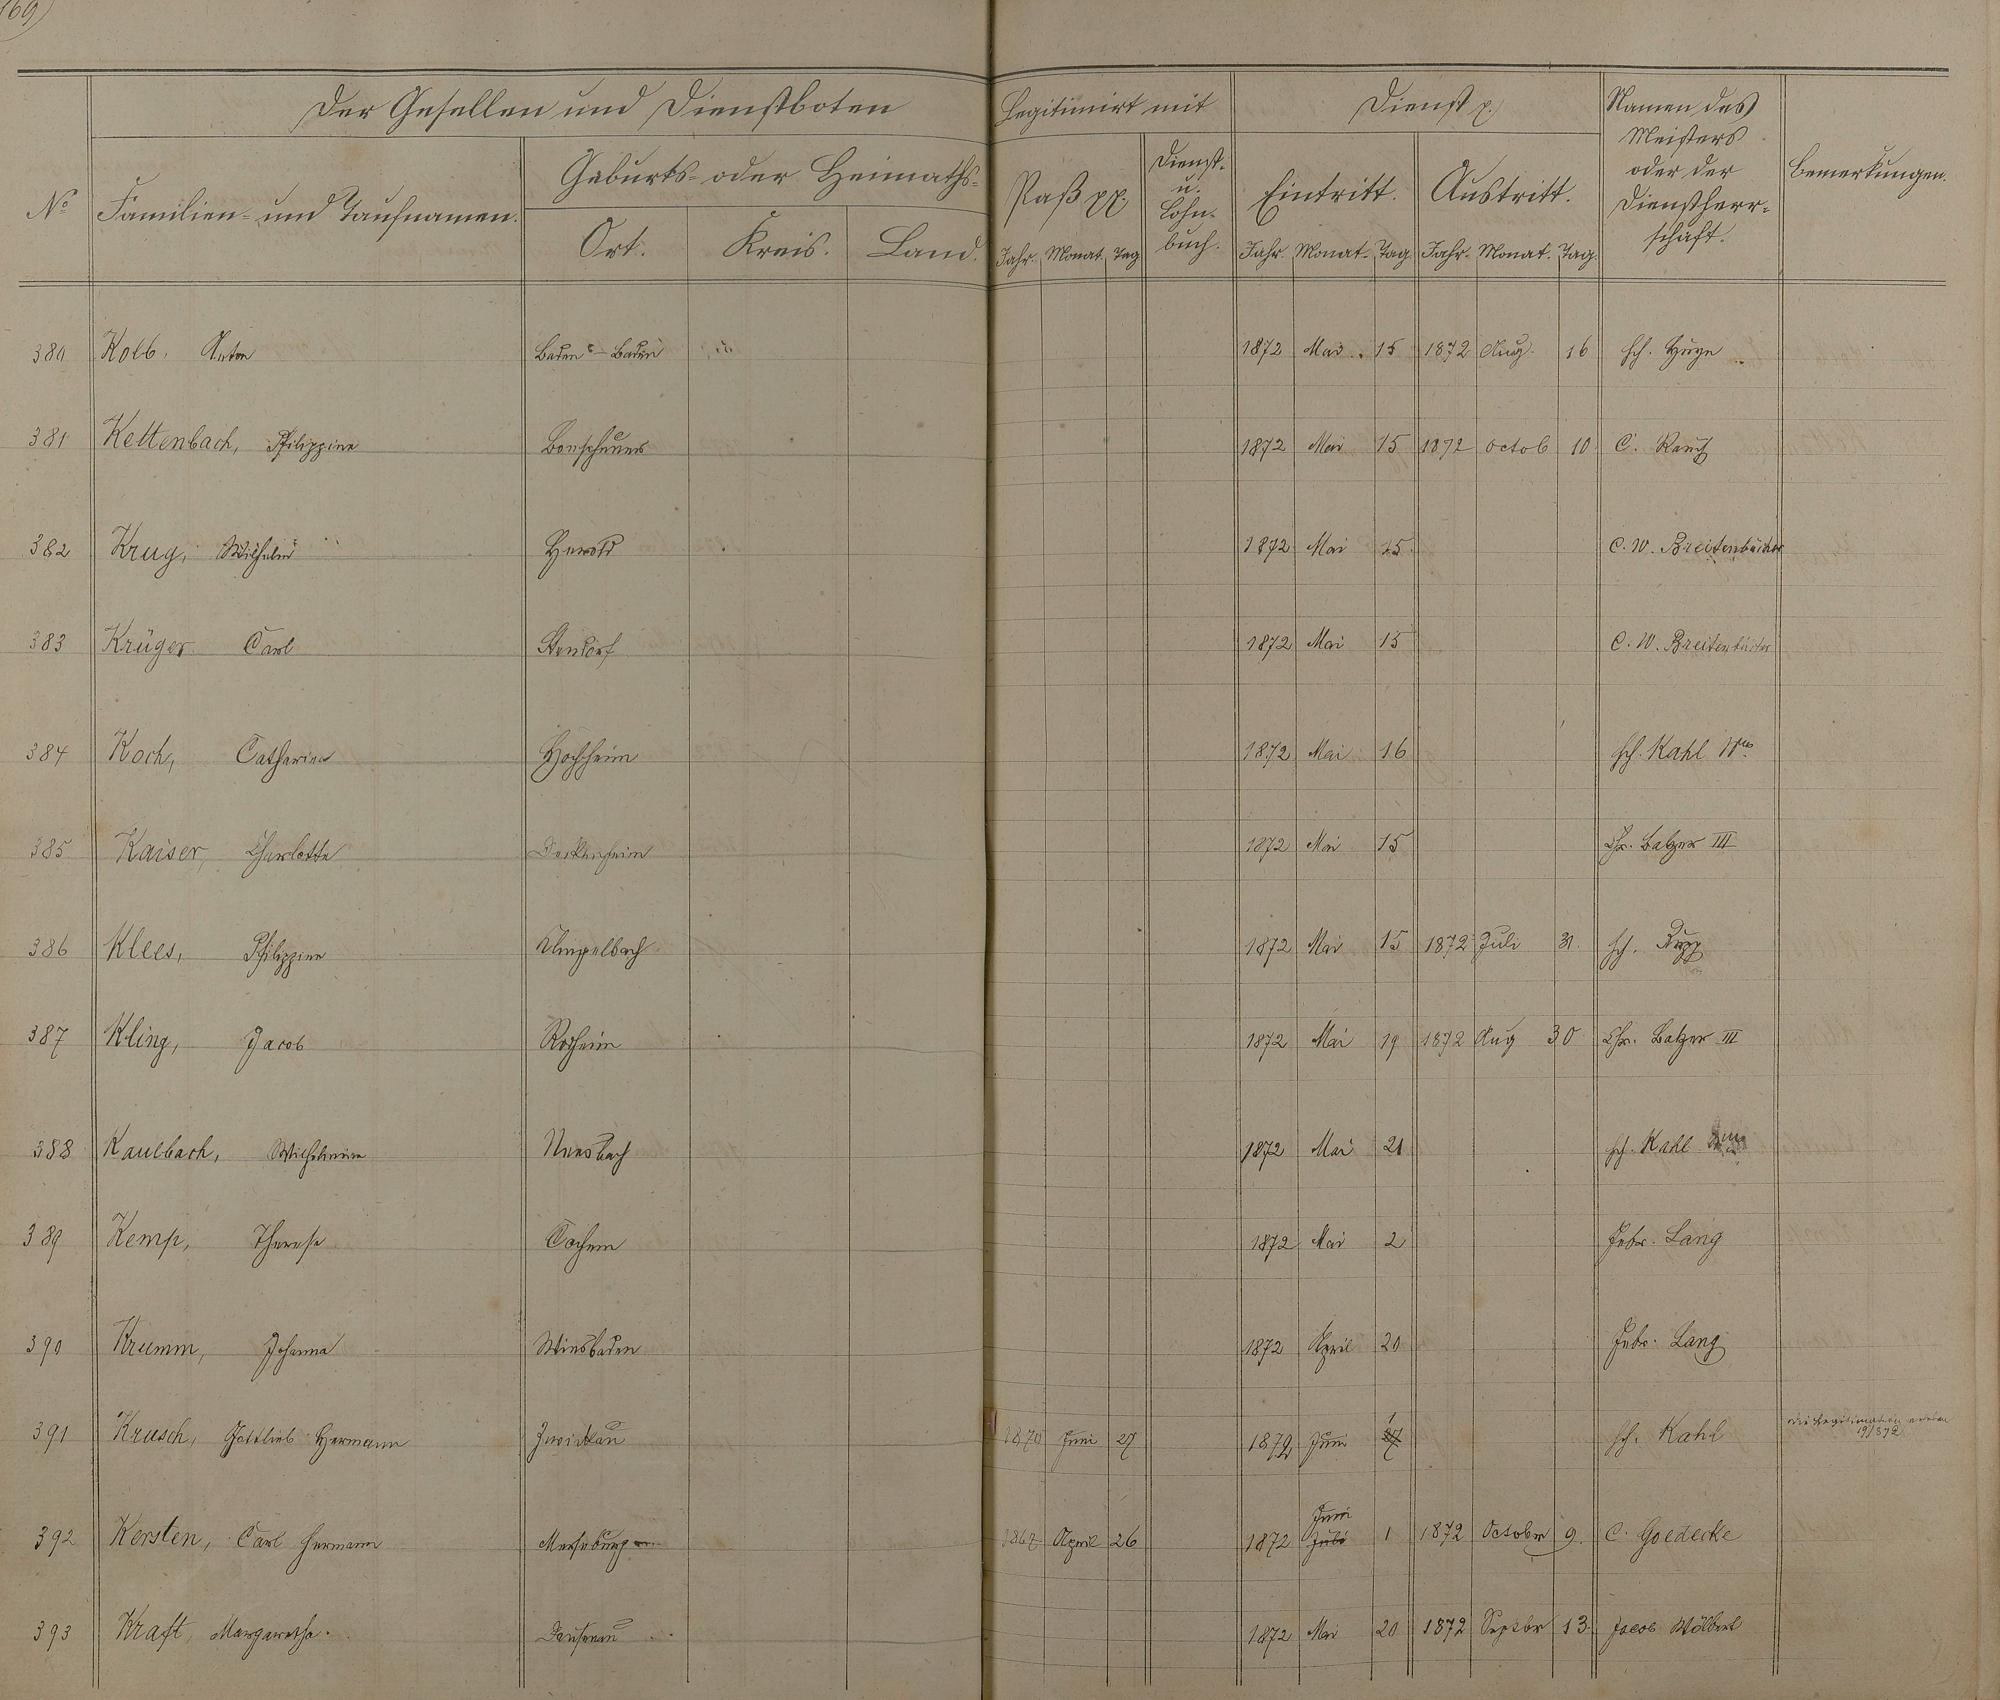 169)
Der Gesellen und Dienstboten Legitimirt mit Dienst p.) Namen des Meisters oder der Dienstherr- schaft. Bemerkungen.
No Familien- und Taufnamen. Geburts- oder Heimaths- Paß pp. Dienst- u. Lohn- buch. Eintritt. Austritt.
Ort. Kreis. Land. Jahr. Monat. Tag Jahr. Monat. Tag. Jahr. Monat. Tag.
380 Kolb, Anton Baden-Baden 1872 Mai 15 1872 Aug. 16
381 Kettenbach, Philippine 1872 Mai 15 1872 Octob 10 C. Rauch
382 Krug, Wilhelm Herold 1872 Mai 15 C. W. Breitenbücher
383 Krüger Carl 1872 Mai 15 C. W. Breitenbücher
384 Koch, Catharina Hochheim 1872 Mai 16 Kahl
385 Kaiser, Charlotte 1872 Mai 15 Chr. Balzer III
386 Klees, Philippine Klingelbach 1872 Mai 15 1872 Juli 31 Rupp
387 Kling, Jacob 1872 Mai 19 1872 Aug 30 Chr. Balzer III
388 Kaulbach, Wilhelmine Neesbach 1872 Mai 21 Kahl
389 Kemp, Therese Cochem 1872 Mai 2 Gebr. Lang
390 Krumm, Johanna Wiesbaden 1872 April 20 Gebr. Lang
391 Krusch, Gottlieb Hermann Zwickau 1870 Juni 27 1872 Juni 1 Kahl
392 Kersten, Carl Hermann Merseburg 1867 April 26 1872 Juli Juni 1 1872 October 9. C. Goedecke
393 Kraft, Margaretha. Dausenau 1872 Mai 20 1872 Septbr 13. Jacob